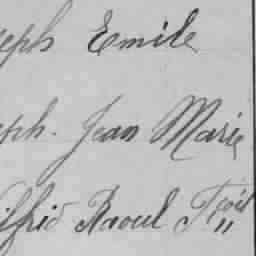 eph Emile
eph. Jean Marie
ilfrid Raoul